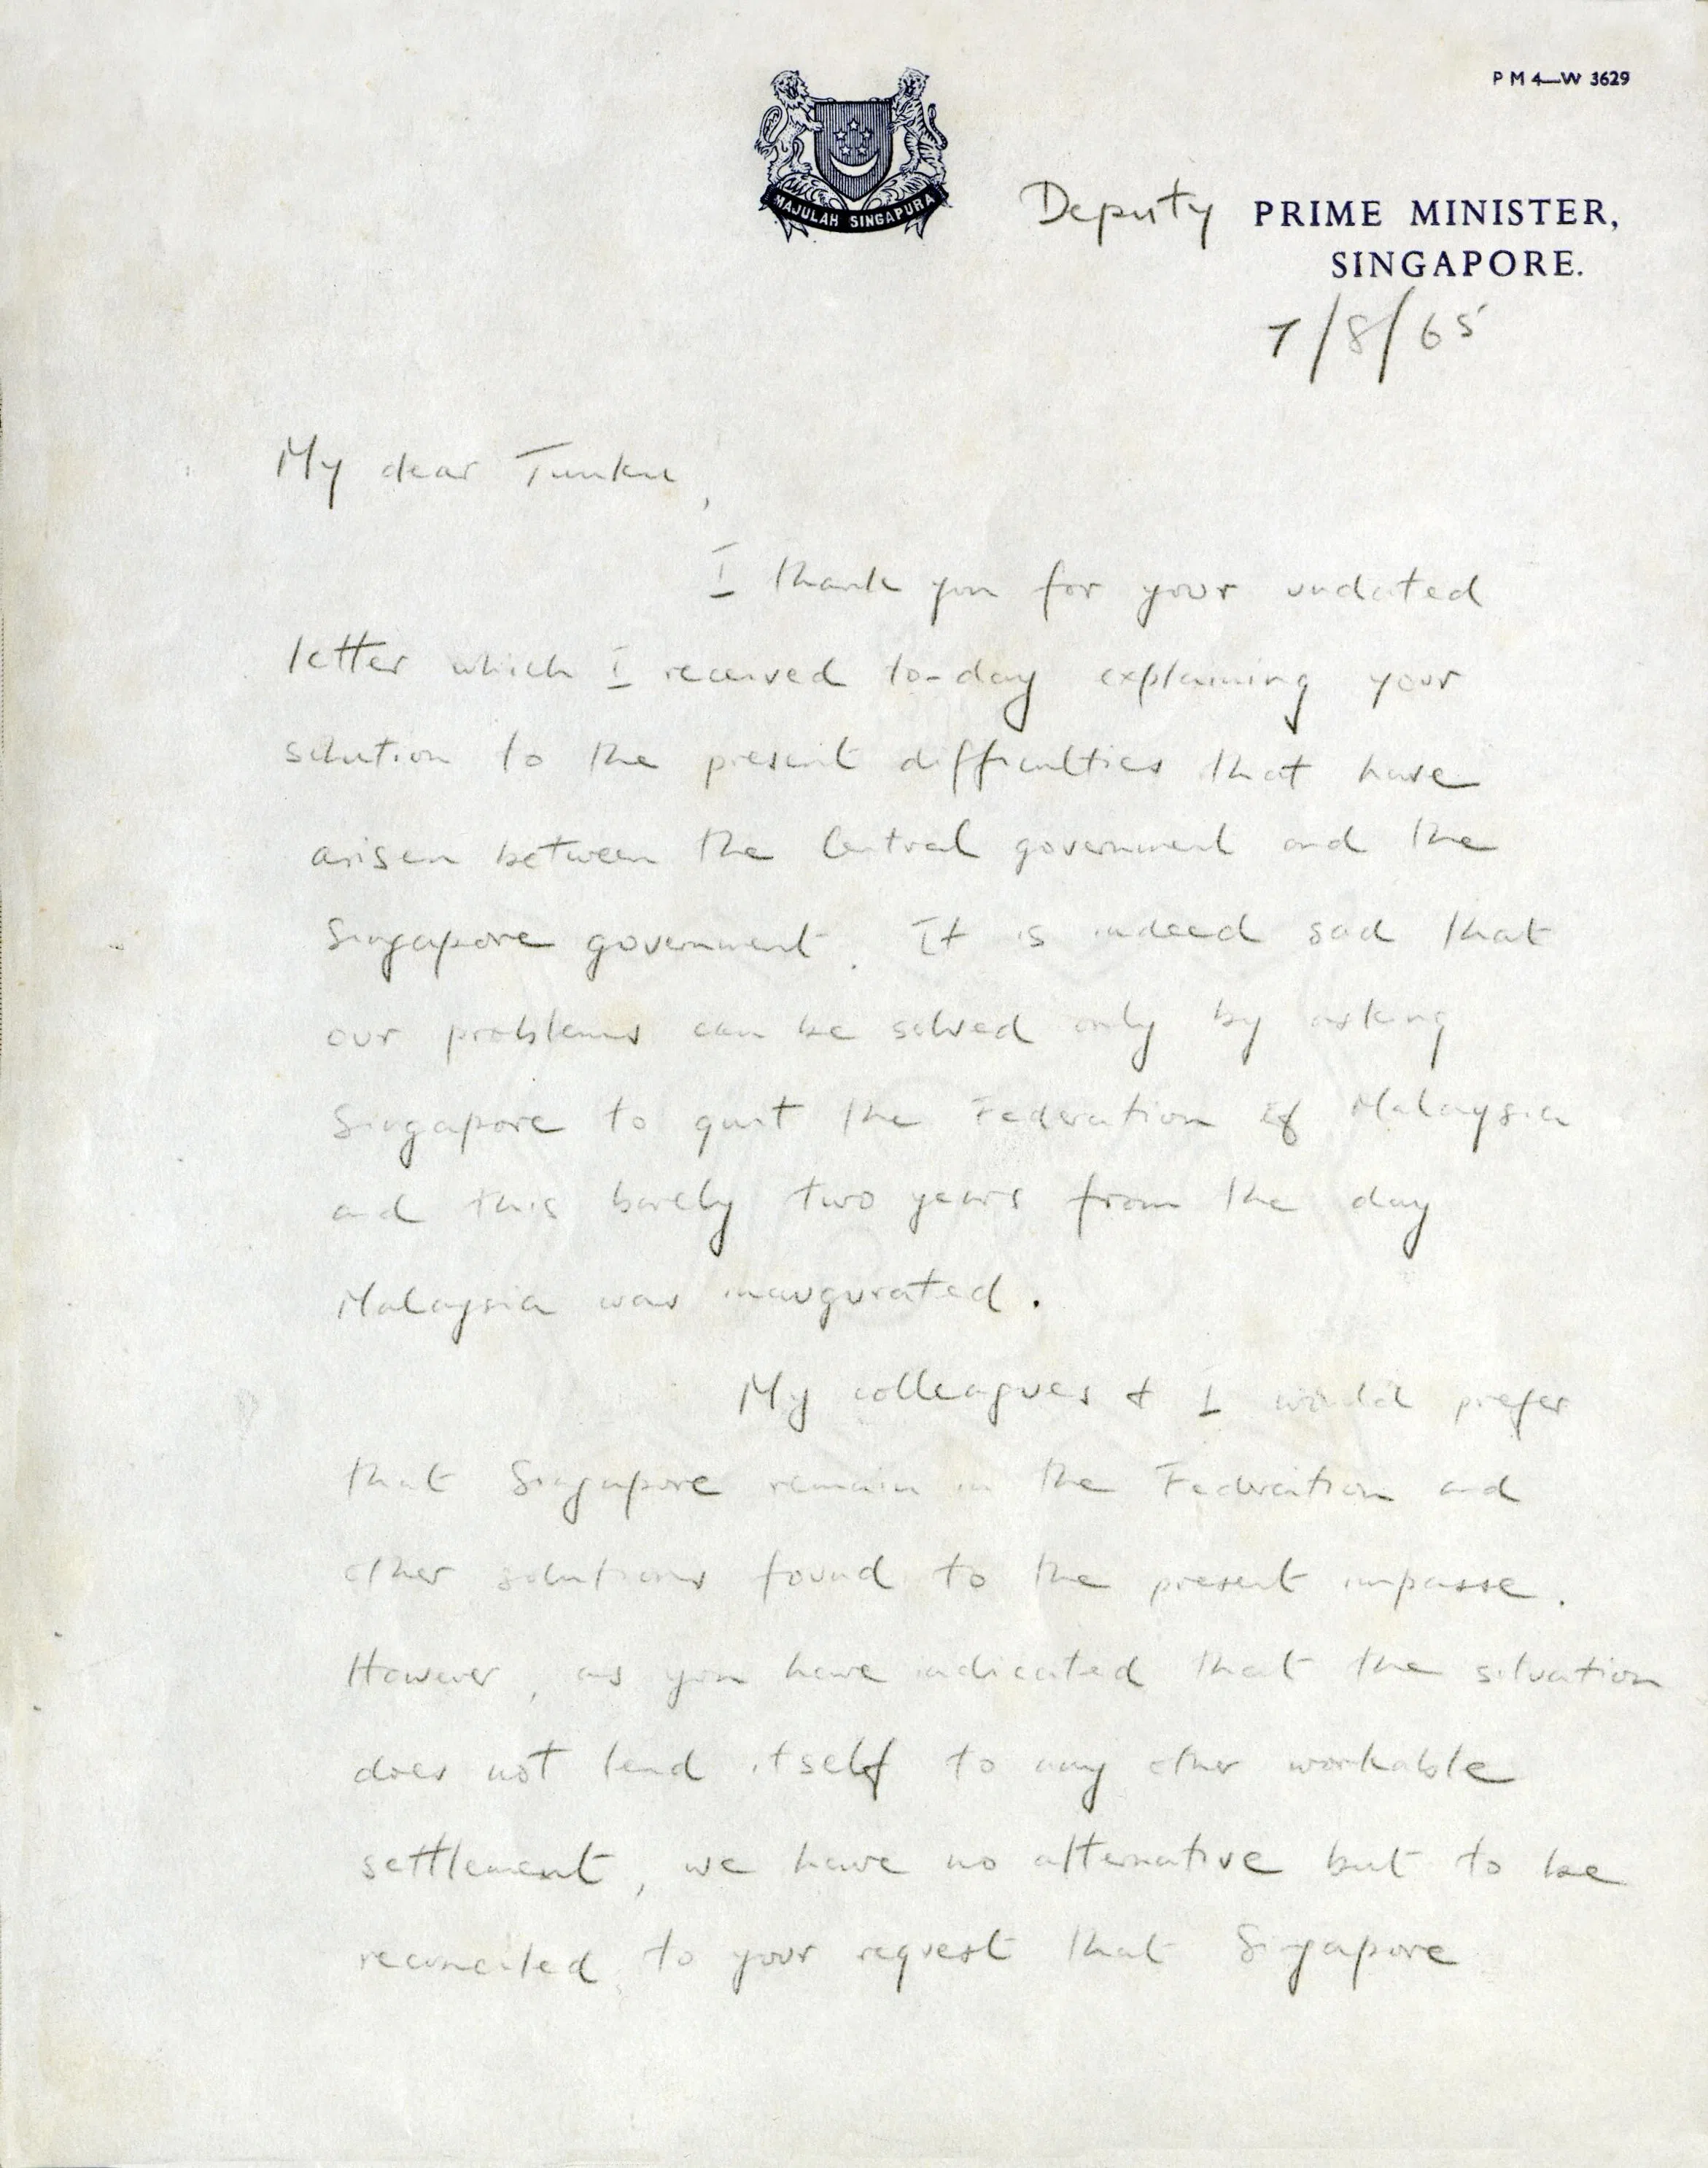 P M 4—W 3629
MAJULAH SINGAPURA
Deputy PRIME MINISTER,
SINGAPORE.
7/8/65
My dear Tunku,
I thank you for your undated
letter which I received to-day explaining your
solution to the present difficulties that have
arisen between the Central government and the
Singapore government. It is indeed sad that
our problems can be solved only by asking
Singapore to quit the Federation of Malaysia
and this barely two years from the day
Malaysia was inaugurated.
My colleagues & I would prefer
that Singapore remain in the Federation and
other solutions found to the present impasse.
However, as you have indicated that the situation
does not lend itself to any other workable
settlement, we have no alternative but to be
reconciled to your request that Singapore